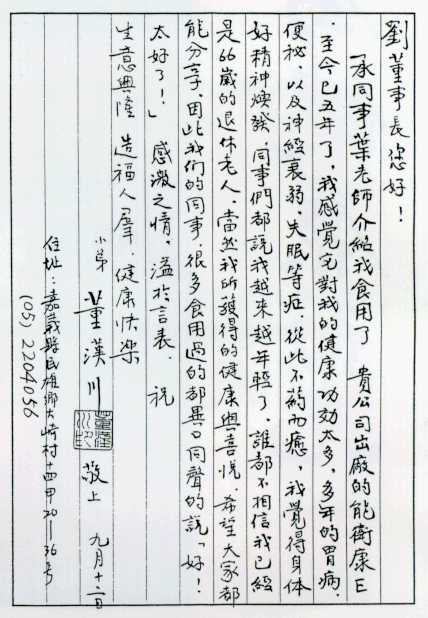 劉董事長您好！
承同事葉老師介紹我食用了　貴公司出廠的能衛康E
．至今已五年了，我感覺它對我的健康功効太多，多年的胃病．
便祕．以及神經衰弱．失眠等症．從此不葯而癒，我覺得身体
好精神煥發．同事們都說我越來越年輕了．誰都不相信我已經
是66歲的退休老人．當然我所獲得的健康與喜悅．希望大家都
能分享．因此我們的同事．很多食用過的都異口同聲的說「好！
太好了！」　感激之情，溢於言表．　祝
生意興隆　造福人羣．健康快樂
小弟　董漢川　敬上　九月十二日
住址：嘉義縣民雄鄉大崎村十四甲20－36号
(05) 2204056